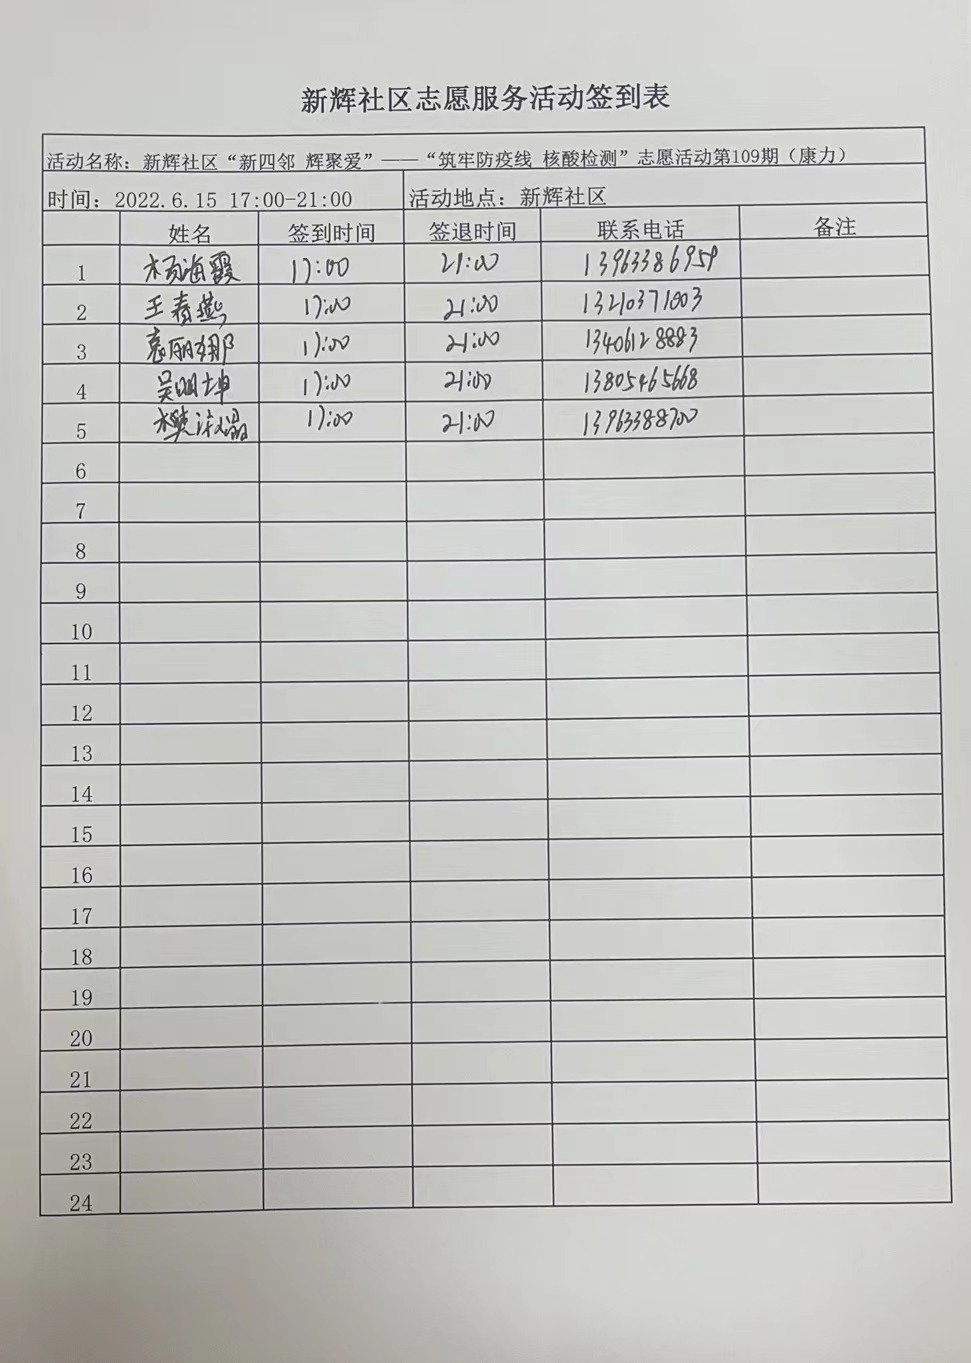 新辉社区志愿服务活动签到表
活动名称：新辉社区“新四邻 辉聚爱”——“筑牢防疫线 核酸检测”志愿活动第109期（康力）
时间：2022.6.15 17:00-21:00 活动地点：新辉社区
姓名 签到时间 签退时间 联系电话 备注
1 杨海霞 17:00 21:00 13963386959
2 王春燕 17:00 21:00 13210371003
3 袁丽娜 17:00 21:00 13406128883
4 吴明坤 17:00 21:00 13805465668
5 樊 17:00 21:00 13963388700
6
7
8
9
10
11
12
13
14
15
16
17
18
19
20
21
22
23
24